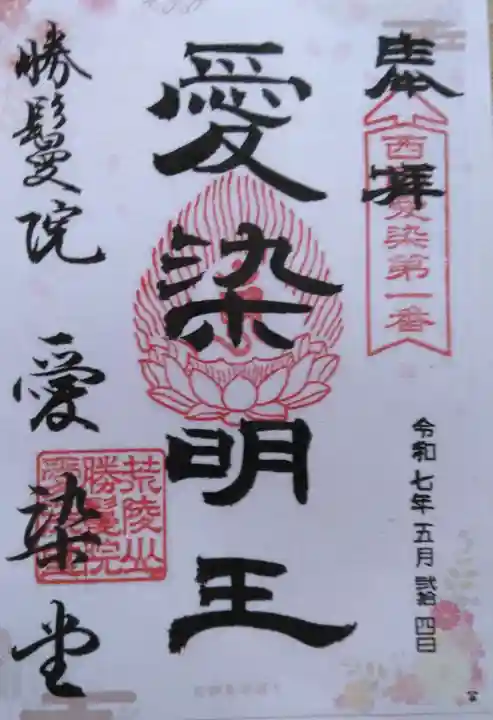 奉拝
西国愛染第一番
令和七年五月弐拾四日
愛染明王
勝鬘院 愛染堂
荒陵山
勝鬘院